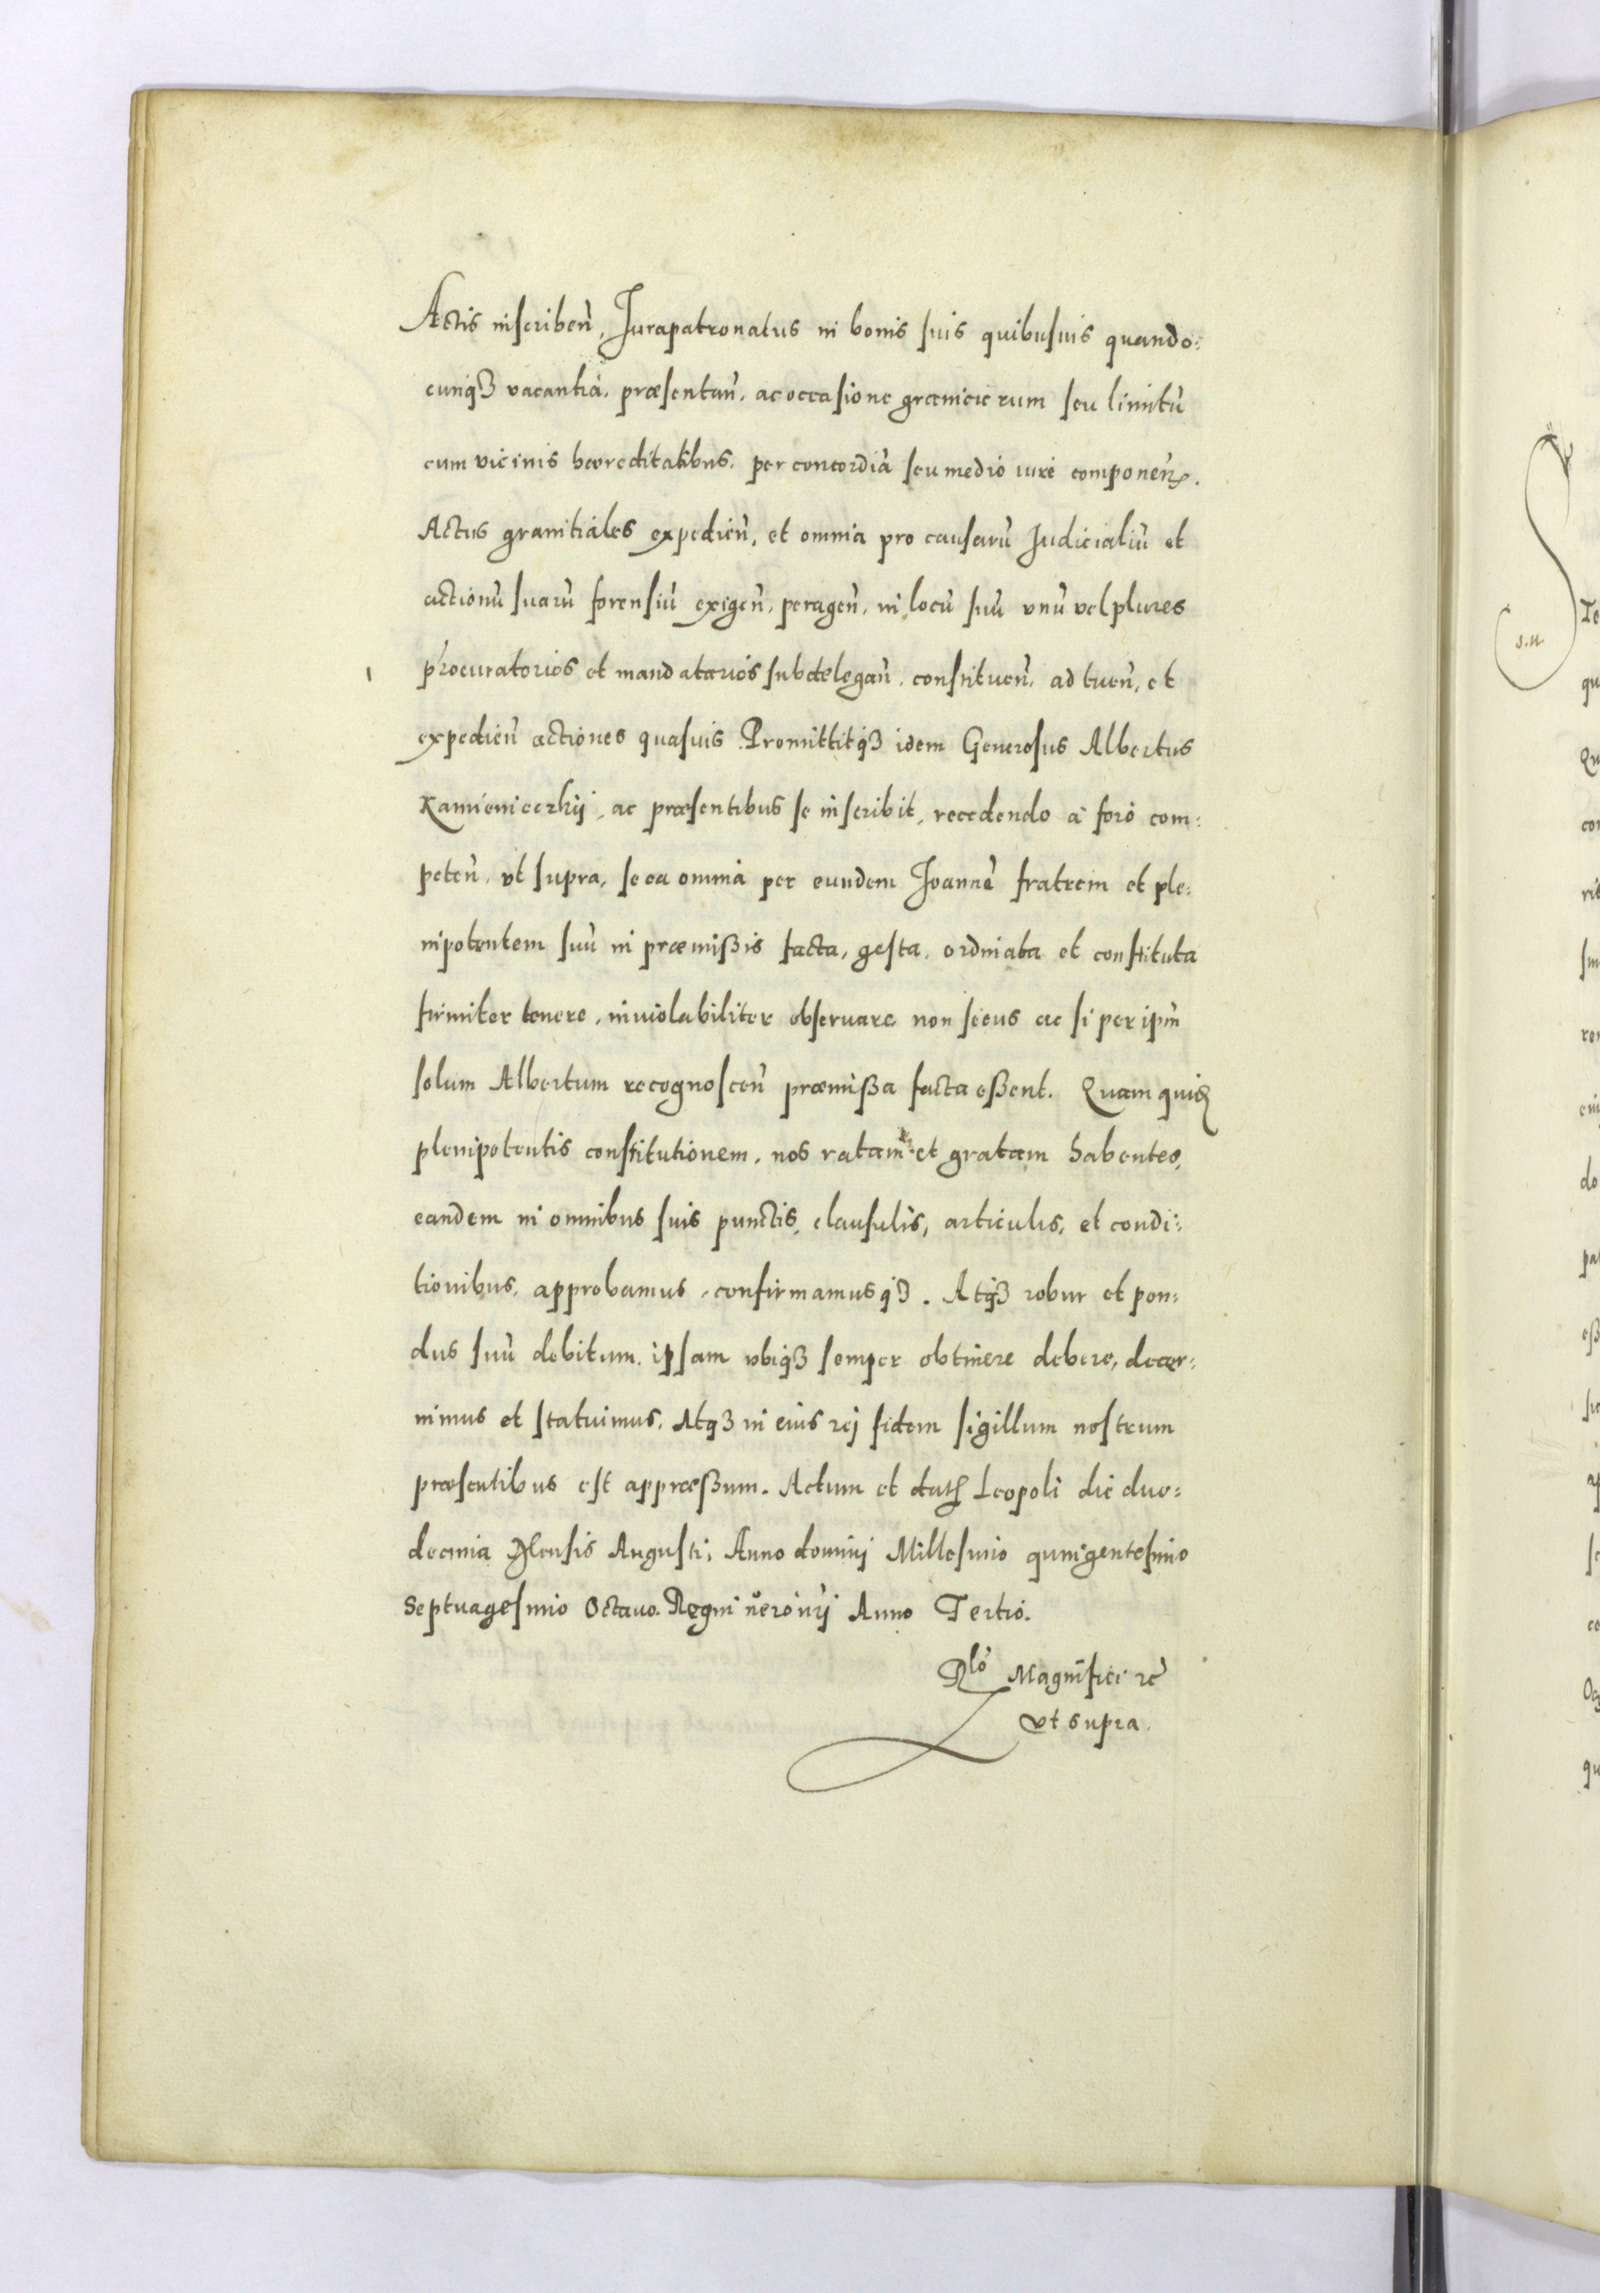 Actis inscriben̄, Jurapatronatus in bonis suis quibusuis quando:
cunq3 vacantia, præsentan̄, ac occasione granicierum seu limitū
cum vicinis hæreditatibus, per concordiā seu medio iure componen̄.
Actus granitiales expedien̄, et omnia pro causarū Judicialiū et
actionū suarū forensiū exigen̄, peragen̄, in locū suū vnū vel plures
procuratorios et mandatarios subdelegan̄, constituen̄, ad tuen̄, et
expedien̄ actiones quasuis. Promittitq3 idem Generosus Albertus
Kamienieczkij, ac præsentibus se inscribit, recedendo à foro com:
peten̄, vt supra, se ea omnia per eundem Joannē fratrem et ple:
nipotentem suū in præmißis facta, gesta, ordinata et constituta
firmiter tenere, inuiolabiliter obseruare non secus ac si per ipm̄
solum Albertum recognoscen̄ præmißa facta eßent. Quam quid
plenipotentis constitutionem, nos ratam et gratam habentes,
eandem in omnibus suis punctis, clausulis, articulis, et condi:
tionibus, approbamus, confirmamusq3. Atq3 robur et pon:
dus suū debitum, ipsam vbiq3 semper obtinere debere, decer:
nimus et statuimus. Atq3 in eius rej fidem sigillum nostrum
præsentibus est appræßum. Actum et dat Leopoli die duo:
decima Mensis Augusti, Anno dominj Millesimo quingentesimo
Septuagesimo Octauo. Regni n̄ero n̄rj Anno Tertio.
Rlō Magnifici rē
vt supra.
S
s.n